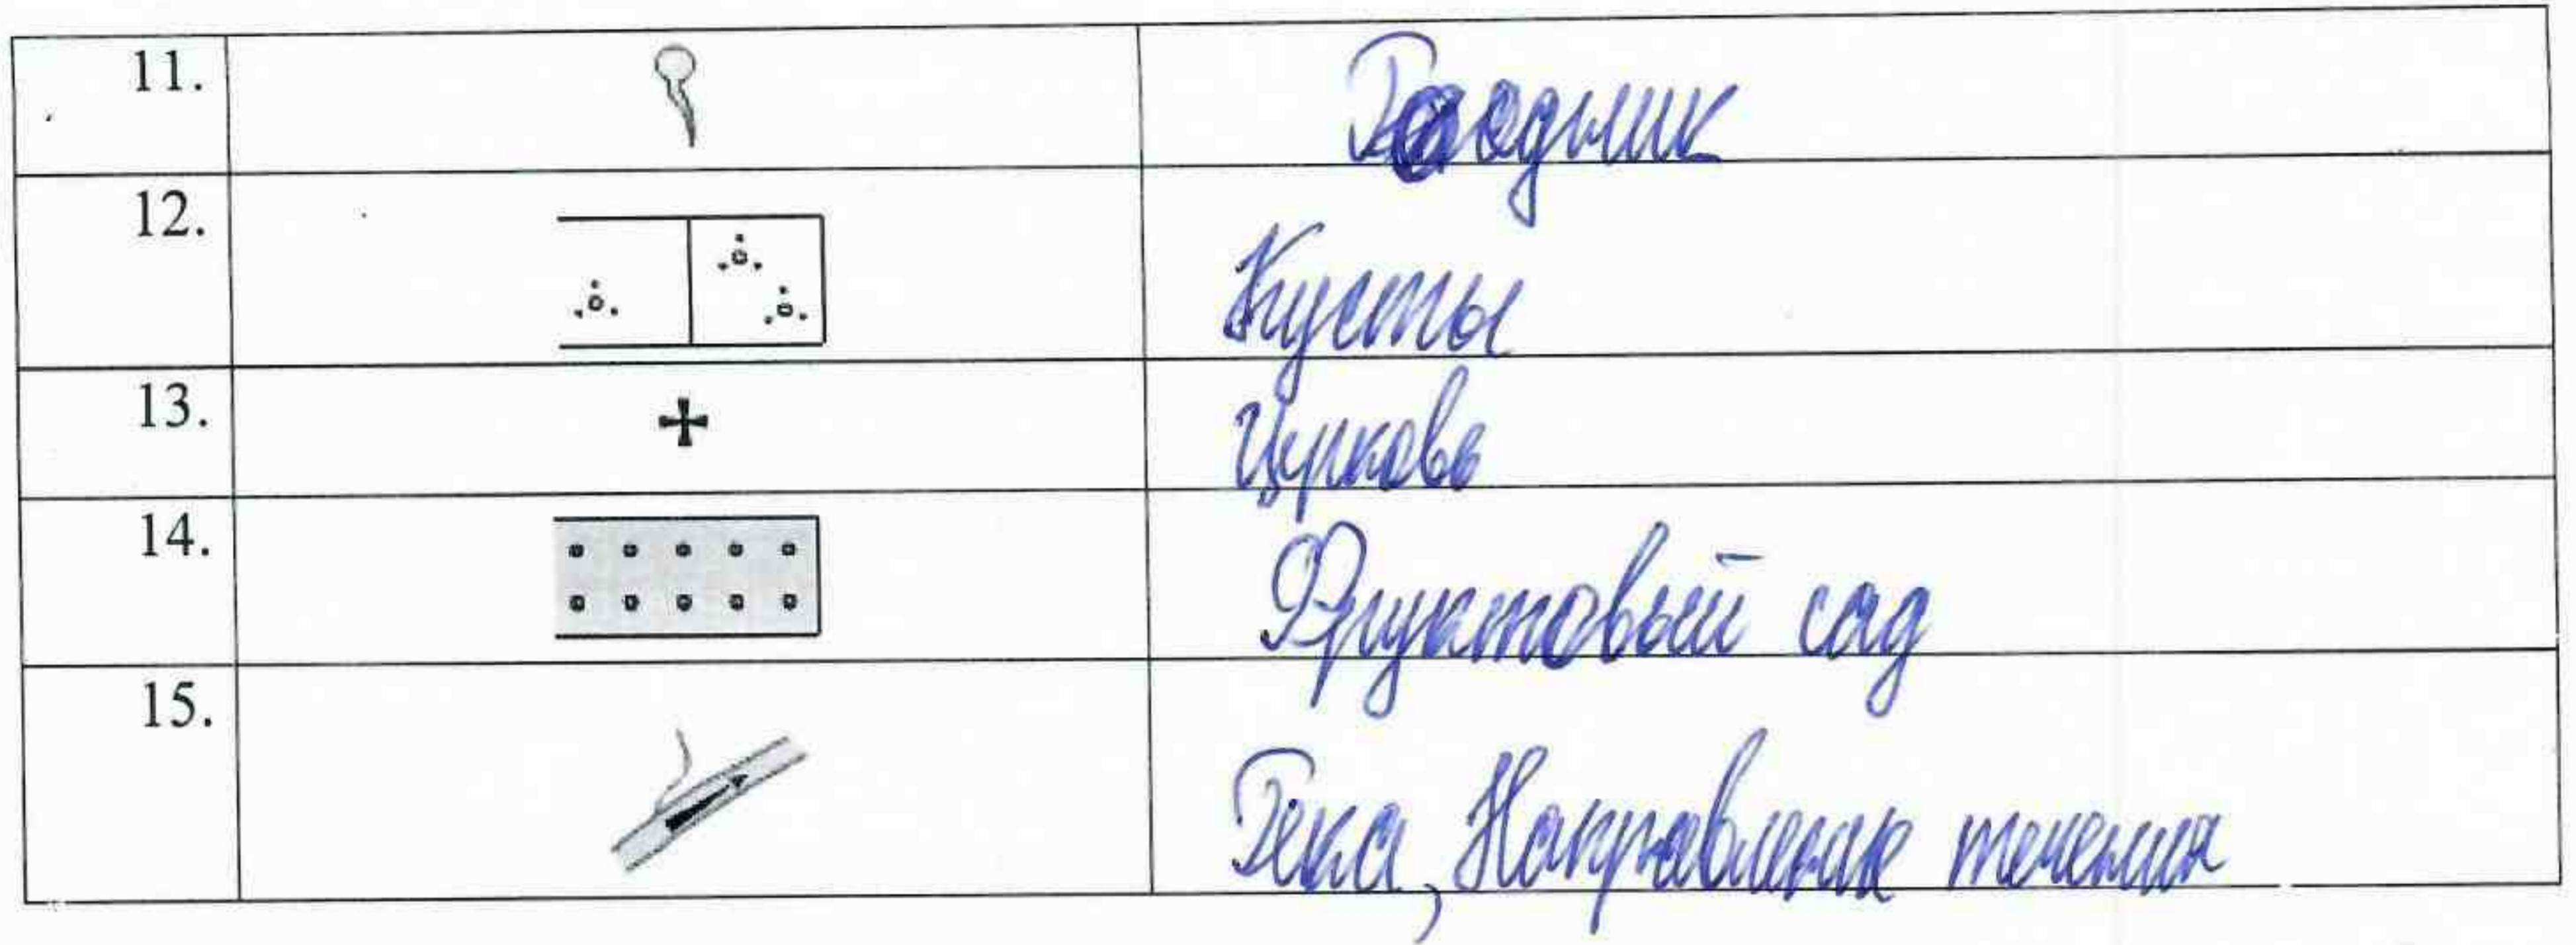 11. Родник
12. Кусты
13. Церковь
14. Фруктовый сад
15. Река, Направление течения